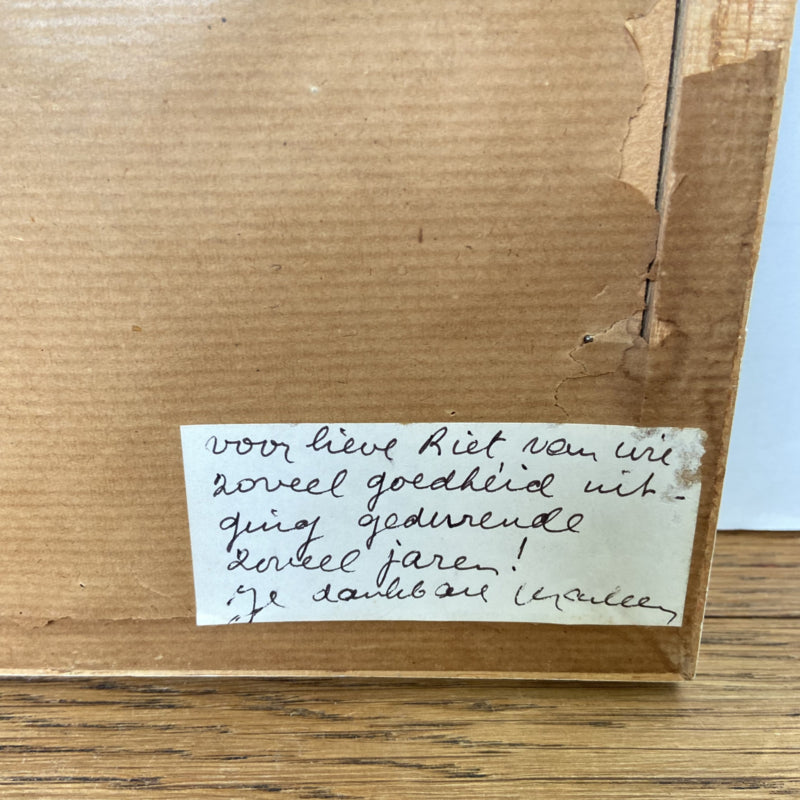 voor lieve Riet van wie
zoveel goedheid uit-
ging gedurende
zoveel jaren!
je dankbare